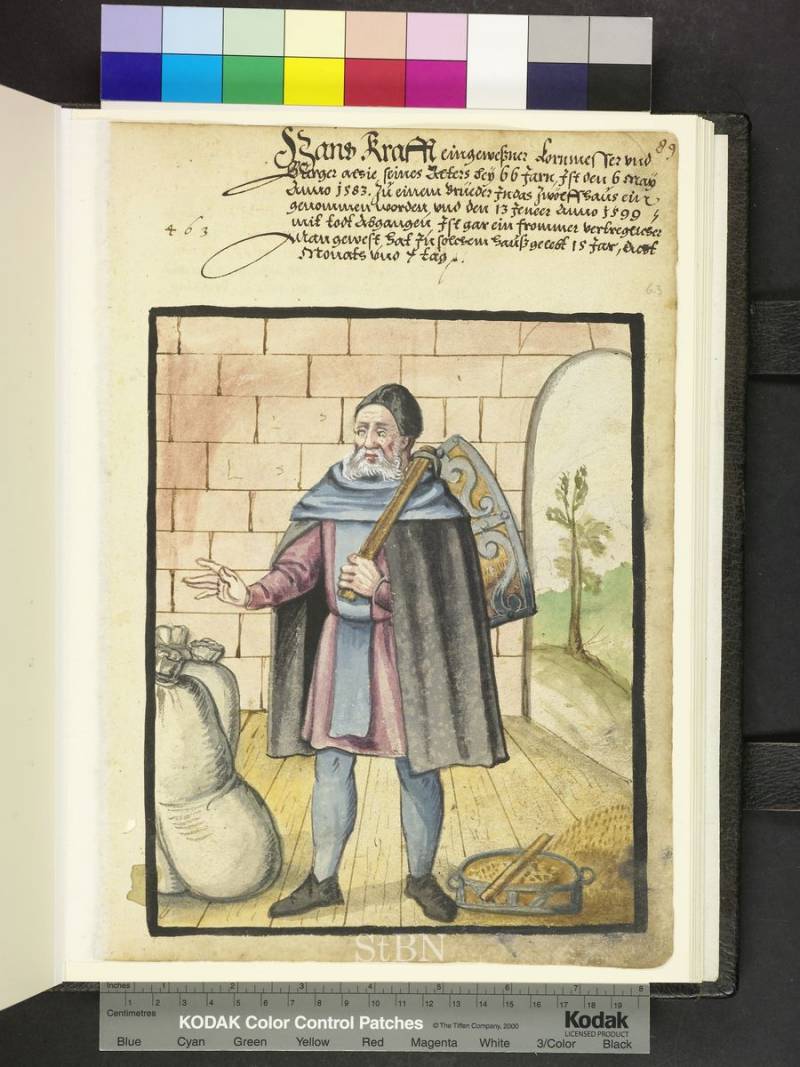 89
Hans Krafft eingewesner Kornmesser und
Burger alhie, seines Alters bey 66 Jarn, Ist den 6 May
Anno 1583. Zu einem brueder In das zwölffhaus ein
genommen worden, vnd den 13 Jenner Anno 1599
463
mit todt Abgangen Ist gar ein frommer vertreglicher
Man gewest, hat In solchem hauß gelebt 15 Jar, Acht
Monats vnd 7 tag.
63
StBN
Inches 1 2 3 4 5 6 7 8
Centimetres 1 2 3 4 5 6 7 8 9 10 11 12 13 14 15 16 17 18 19
KODAK Color Control Patches © The Tiffen Company, 2000 Kodak
LICENSED PRODUCT
Blue Cyan Green Yellow Red Magenta White 3/Color Black